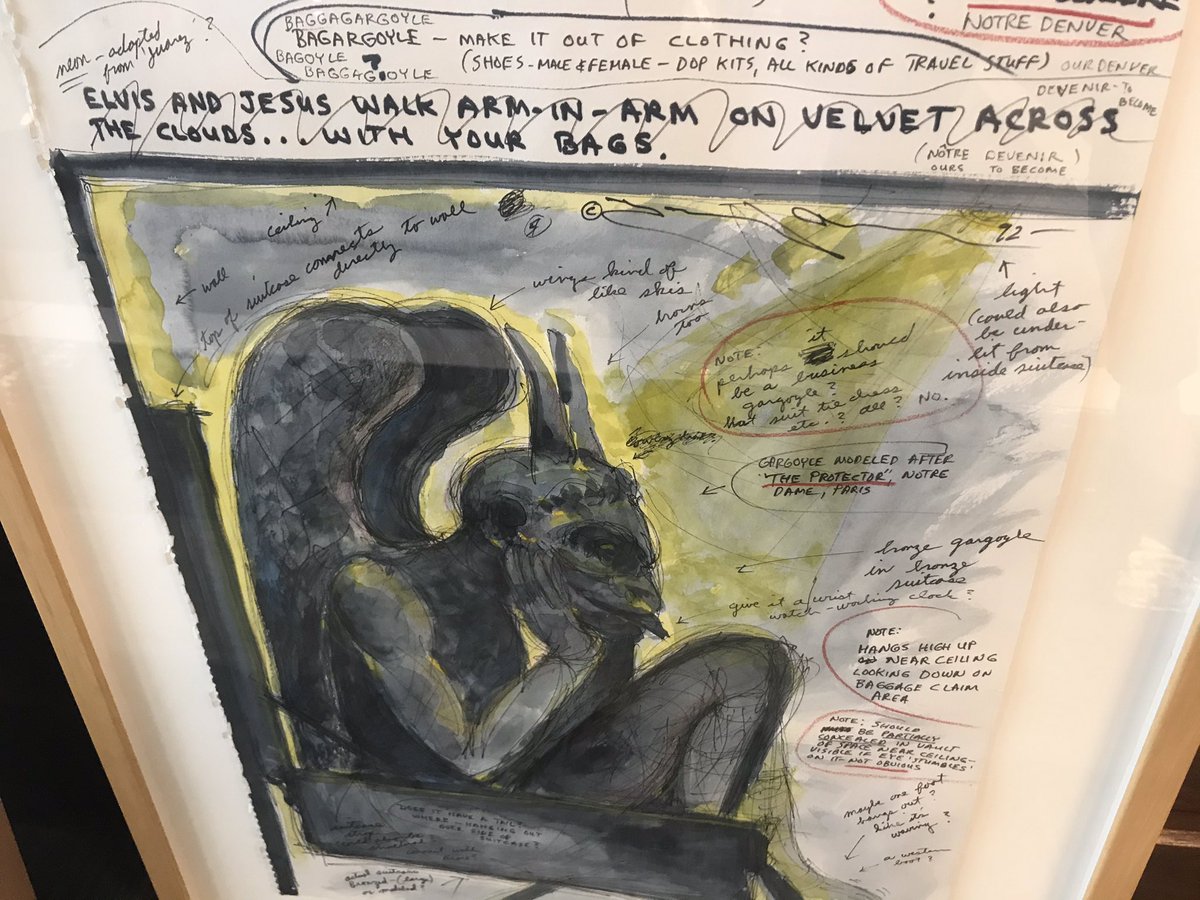 NOTRE DENVER
neon-adapted
from 'Juarez'?
BAGGAGARGOYLE
BAGARGOYLE — MAKE IT OUT OF CLOTHING?
BAGOYLE ?
(SHOES-MALE & FEMALE-DOP KITS, ALL KINDS OF TRAVEL STUFF)
BAGGAGOYLE
OUR DENVER
DEVENIR-TO
BECOME
ELVIS AND JESUS WALK ARM-IN-ARM ON VELVET ACROSS
THE CLOUDS... WITH YOUR BAGS.
(NÔTRE DEVENIR)
OURS TO BECOME
ceiling
wall
top of suitcase connects to wall
directly
©
92
wings kind of
like skis
horns
too
light
(could also
be under-
lit from
inside suitcase)
NOTE: it
perhaps should
be a business
gargoyle?
that suit tie dress
etc.? all? NO.
GARGOYLE MODELED AFTER
"THE PROTECTOR", NOTRE
DAME, PARIS
bronze gargoyle
in bronze
suitcase
give it a wrist
watch-working clock?
NOTE:
HANGS HIGH UP
NEAR CEILING
LOOKING DOWN ON
BAGGAGE CLAIM
AREA
NOTE: SHOULD
BE PARTIALLY
CONCEALED IN VAULT
OF SPACE NEAR CEILING-
VISIBLE IF EYE 'STUMBLES'
ON IT-NOT OBVIOUS
maybe one foot
hangs out?
like it's
waving?
a western
boot?
DOES IT HAVE A TAIL?
WHERE - HANGING OUT
SIDE OF
SUITCASE?
actual suitcase
Bronzed-(large)
or modeled?